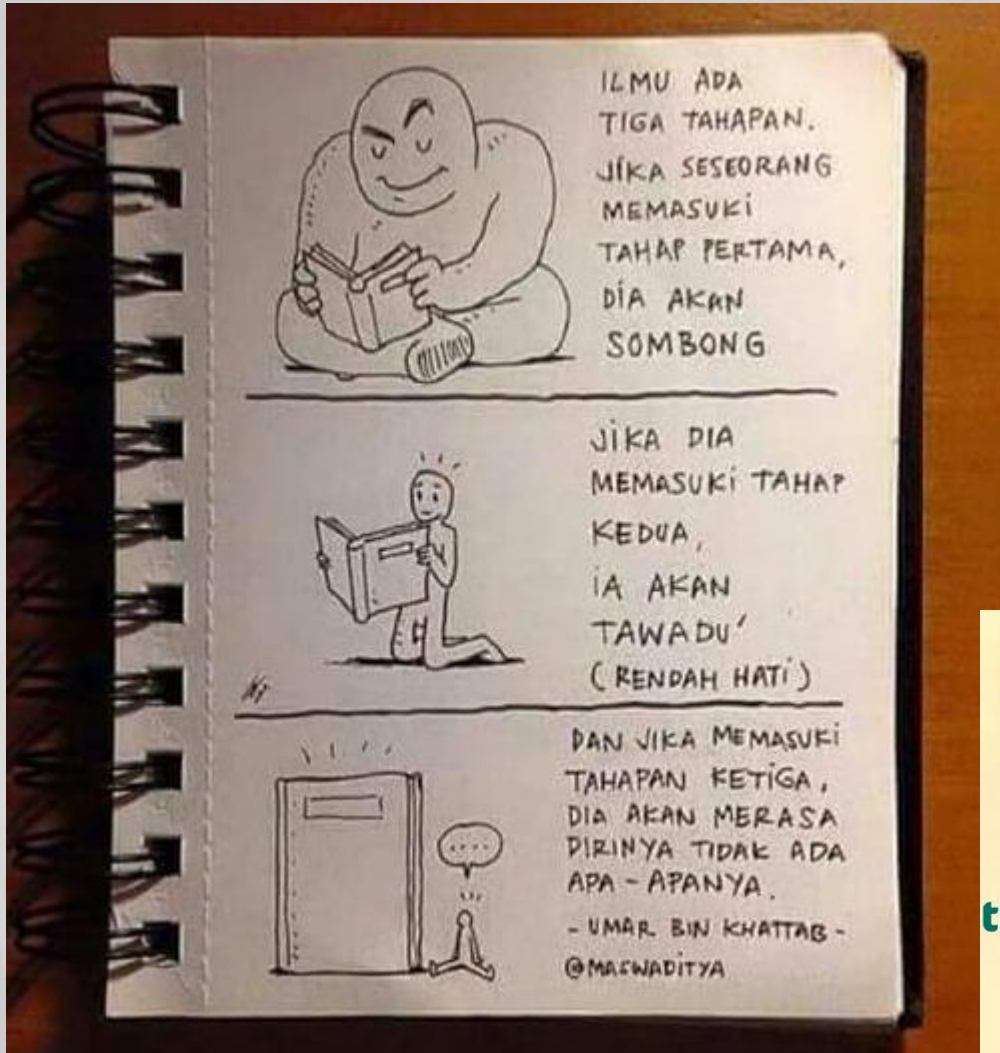 ILMU ADA
TIGA TAHAPAN.
JIKA SESEORANG
MEMASUKI
TAHAP PERTAMA,
DIA AKAN
SOMBONG
JIKA DIA
MEMASUKI TAHAP
KEDUA,
IA AKAN
TAWADU'
(RENDAH HATI)
DAN JIKA MEMASUKI
TAHAPAN KETIGA,
DIA AKAN MERASA
DIRINYA TIDAK ADA
APA-APANYA.
- UMAR BIN KHATTAB -
@MASWADITYA
t